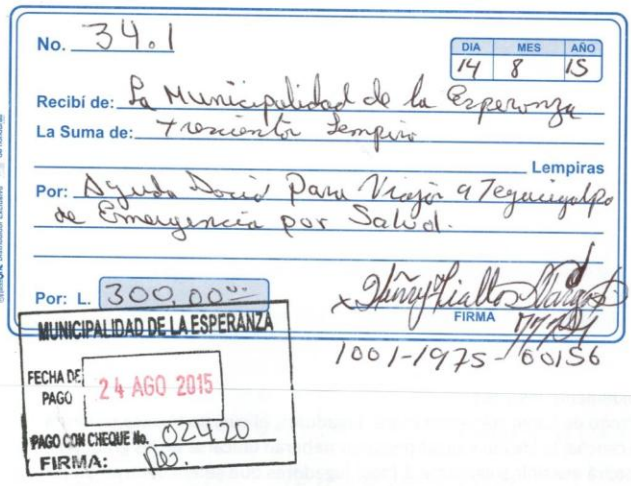 No. 34.1
DIA MES AÑO
14 8 15
Recibí de: La Municipalidad de la Esperanza
La Suma de: Trescientos Lempiras
Lempiras
Por: Ayuda Social Para Viajar a Tegucigalpa
de Emergencia por Salud.
Por: L. 300,00
FIRMA
1001-1975-00156
MUNICIPALIDAD DE LA ESPERANZA
FECHA DE PAGO 24 AGO 2015
PAGO CON CHEQUE No. 02420
FIRMA: